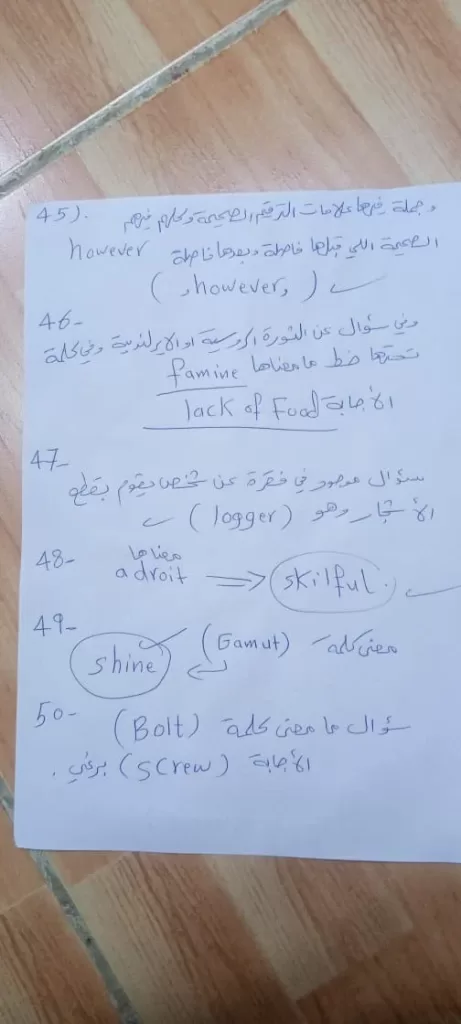 45). وجملة فيها علامات الترقيم الصحيحة وكلهم فيهم
however الصحيحة اللي قبلها فاصلة وبعدها فاصلة
( ,however, )
46- وفي سؤال عن الثورة الروسية او الايرلندية وفي كلمة
تحتها خط ما معناها famine
الأجابة lack of Food
47- سؤال موجود في فقرة عن شخص يقوم بقطع
الأشجار وهو (logger)
48- معناها adroit ⇒ skilful.
49- معنى كلمة (Gamut) shine
50- سؤال ما معنى كلمة (Bolt)
الأجابة (screw) برغي.